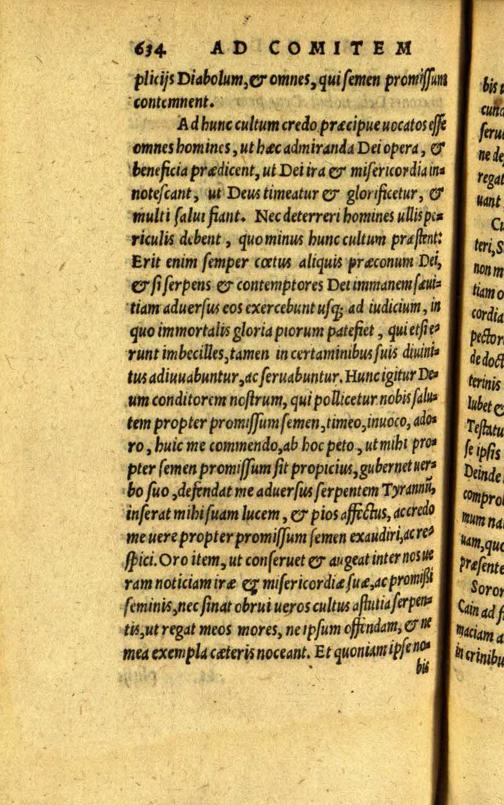 634 AD COMITEM
plicijs Diabolum, & omnes, qui semen promissum
contemnent.
Ad hunc cultum credo præcipue uocatos esse
omnes homines, ut hæc admiranda Dei opera, &
beneficia prædicent, ut Dei ira & misericordia in-
notescant, ut Deus timeatur & glorificetur, &
multi salui fiant. Nec deterreri homines ullis pe-
riculis debent, quo minus hunc cultum præstent:
Erit enim semper cœtus aliquis præconum Dei,
& si serpens & contemptores Dei immanem sæui-
tiam aduersus eos exercebunt usq; ad iudicium, in
quo immortalis gloria piorum patefiet, qui etsi e-
runt imbecilles, tamen in certaminibus suis diuini-
tus adiuuabuntur, ac seruabuntur. Hunc igitur De-
um conditorem nostrum, qui pollicetur nobis salu-
tem propter promissum semen, timeo, inuoco, ado-
ro, huic me commendo, ab hoc peto, ut mihi pro-
pter semen promissum sit propicius, gubernet uer-
bo suo, defendat me aduersus serpentem Tyrannū,
inserat mihi suam lucem, & pios affectus, ac credo
me uere propter promissum semen exaudiri, ac re-
spici. Oro item, ut conseruet & augeat inter nos ue
ram noticiam iræ & misericordiæ suæ, ac promissi
seminis, nec sinat obrui ueros cultus astutia serpen-
tis, ut regat meos mores, ne ipsum offendam, & ne
mea exempla cæteris noceant. Et quoniam ipse no-
bis
bis
cund
seru
ne de
regat
uant
Cu
teri, S
non m
tiam o
cordia
pector
de doct
terinis
lubet &
Testatu
se ipsis
Deinde
compro
mum na
uam, quo
præsente
Soror
Cain ad f
maciam a
in crinibu